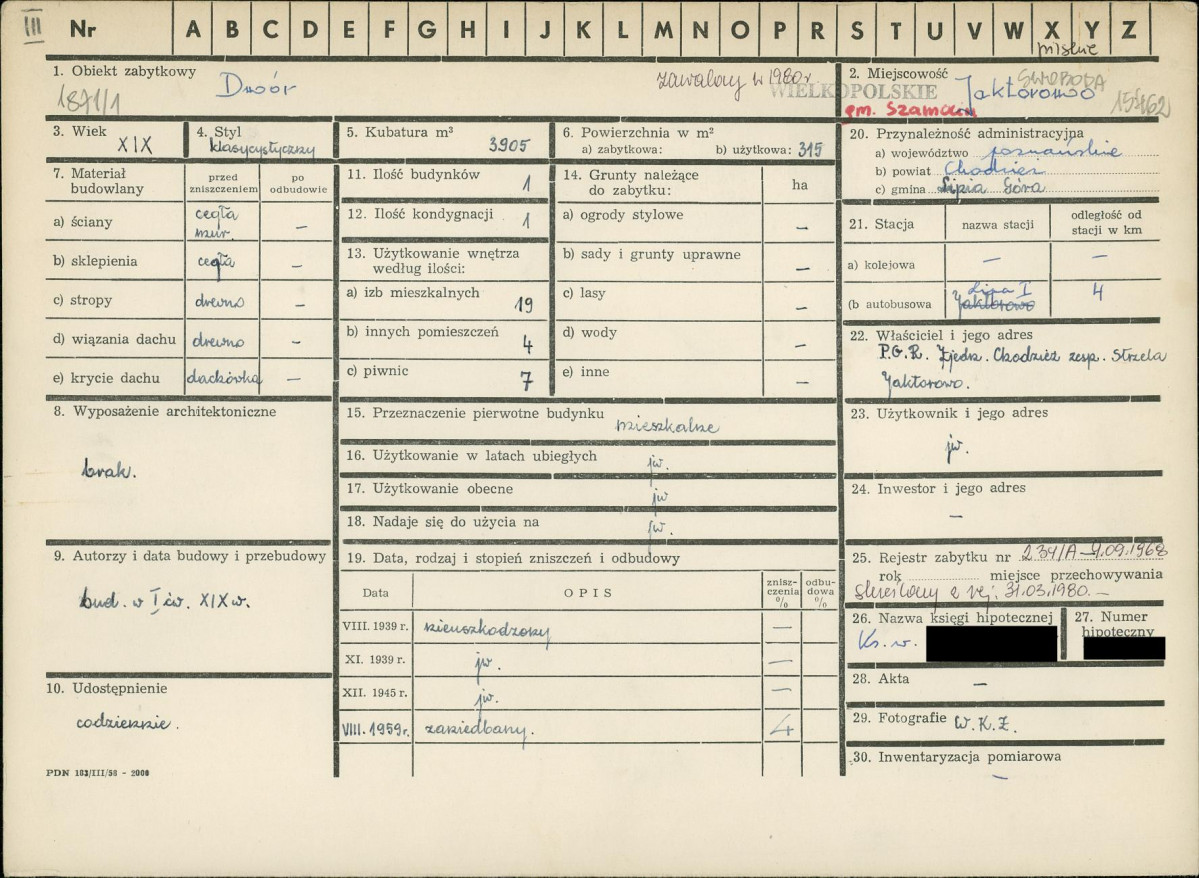 III
Nr A B C D E F G H I J K L M N O P R S T U V W X Y Z
pilskie
1. Obiekt zabytkowy
1871/1
Dwór
zawalony w 1980 r
WIELKOPOLSKIE
2. Miejscowość
SWOBODA
Jaktorowo
gm. Szamocin
3. Wiek
XIX
4. Styl
klasycystyczny
5. Kubatura m³
3905
6. Powierzchnia w m²
a) zabytkowa: b) użytkowa: 315
7. Materiał budowlany
przed zniszczeniem
po odbudowie
a) ściany
cegła
mur.
—
b) sklepienia
cegła
—
c) stropy
drewno
—
d) wiązania dachu
drewno
—
e) krycie dachu
dachówka
—
8. Wyposażenie architektoniczne
brak.
9. Autorzy i data budowy i przebudowy
bud. w I ćw. XIX w.
10. Udostępnienie
codziennie.
PDN 103/III/58 - 2000
11. Ilość budynków
1
12. Ilość kondygnacji
1
13. Użytkowanie wnętrza
według ilości:
a) izb mieszkalnych
19
b) innych pomieszczeń
4
c) piwnic
7
14. Grunty należące
do zabytku:
ha
a) ogrody stylowe
—
b) sady i grunty uprawne
—
c) lasy
—
d) wody
—
e) inne
—
15. Przeznaczenie pierwotne budynku
mieszkalne
16. Użytkowanie w latach ubiegłych
jw.
17. Użytkowanie obecne
jw
18. Nadaje się do użycia na
jw.
19. Data, rodzaj i stopień zniszczeń i odbudowy
Data
OPIS
zniszczenia %
odbudowa %
VIII. 1939 r. nieuszkodzony —
XI. 1939 r. jw. —
XII. 1945 r. jw. —
VIII. 1959 r. zaniedbany. 4
20. Przynależność administracyjna
a) województwo poznańskie
b) powiat Chodzież
c) gmina Lipia Góra
21. Stacja
nazwa stacji
odległość od stacji w km
a) kolejowa
—
—
(b autobusowa
Lipa I
Jaktorowo
4
22. Właściciel i jego adres
P.G.R. Zjedn. Chodzież zesp. Strzelce
Jaktorowo.
23. Użytkownik i jego adres
jw.
24. Inwestor i jego adres
—
25. Rejestr zabytku nr 234/A
rok miejsce przechowywania
skreślony z rej. 31.03.1980. —
26. Nazwa księgi hipotecznej
Ks. w.
27. Numer
hipoteczny
28. Akta
—
29. Fotografie W.K.Z.
30. Inwentaryzacja pomiarowa
—